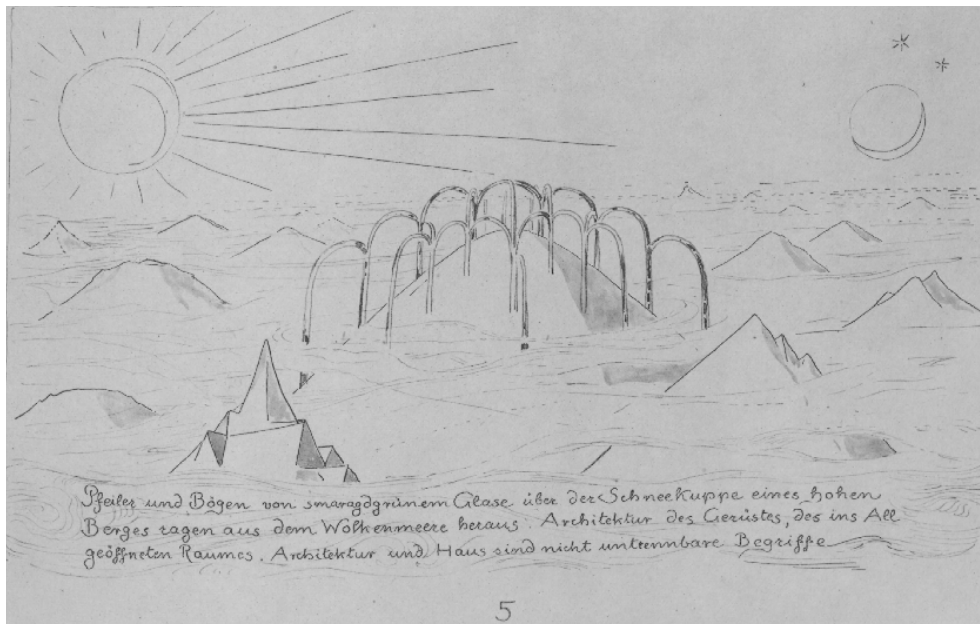 Pfeiler und Bögen von smaragdgrünem Glase über der Schneekuppe eines hohen
Berges ragen aus dem Wolkenmeere heraus. Architektur des Gerüstes, des ins All
geöffneten Raumes. Architektur und Haus sind nicht untrennbare Begriffe
5